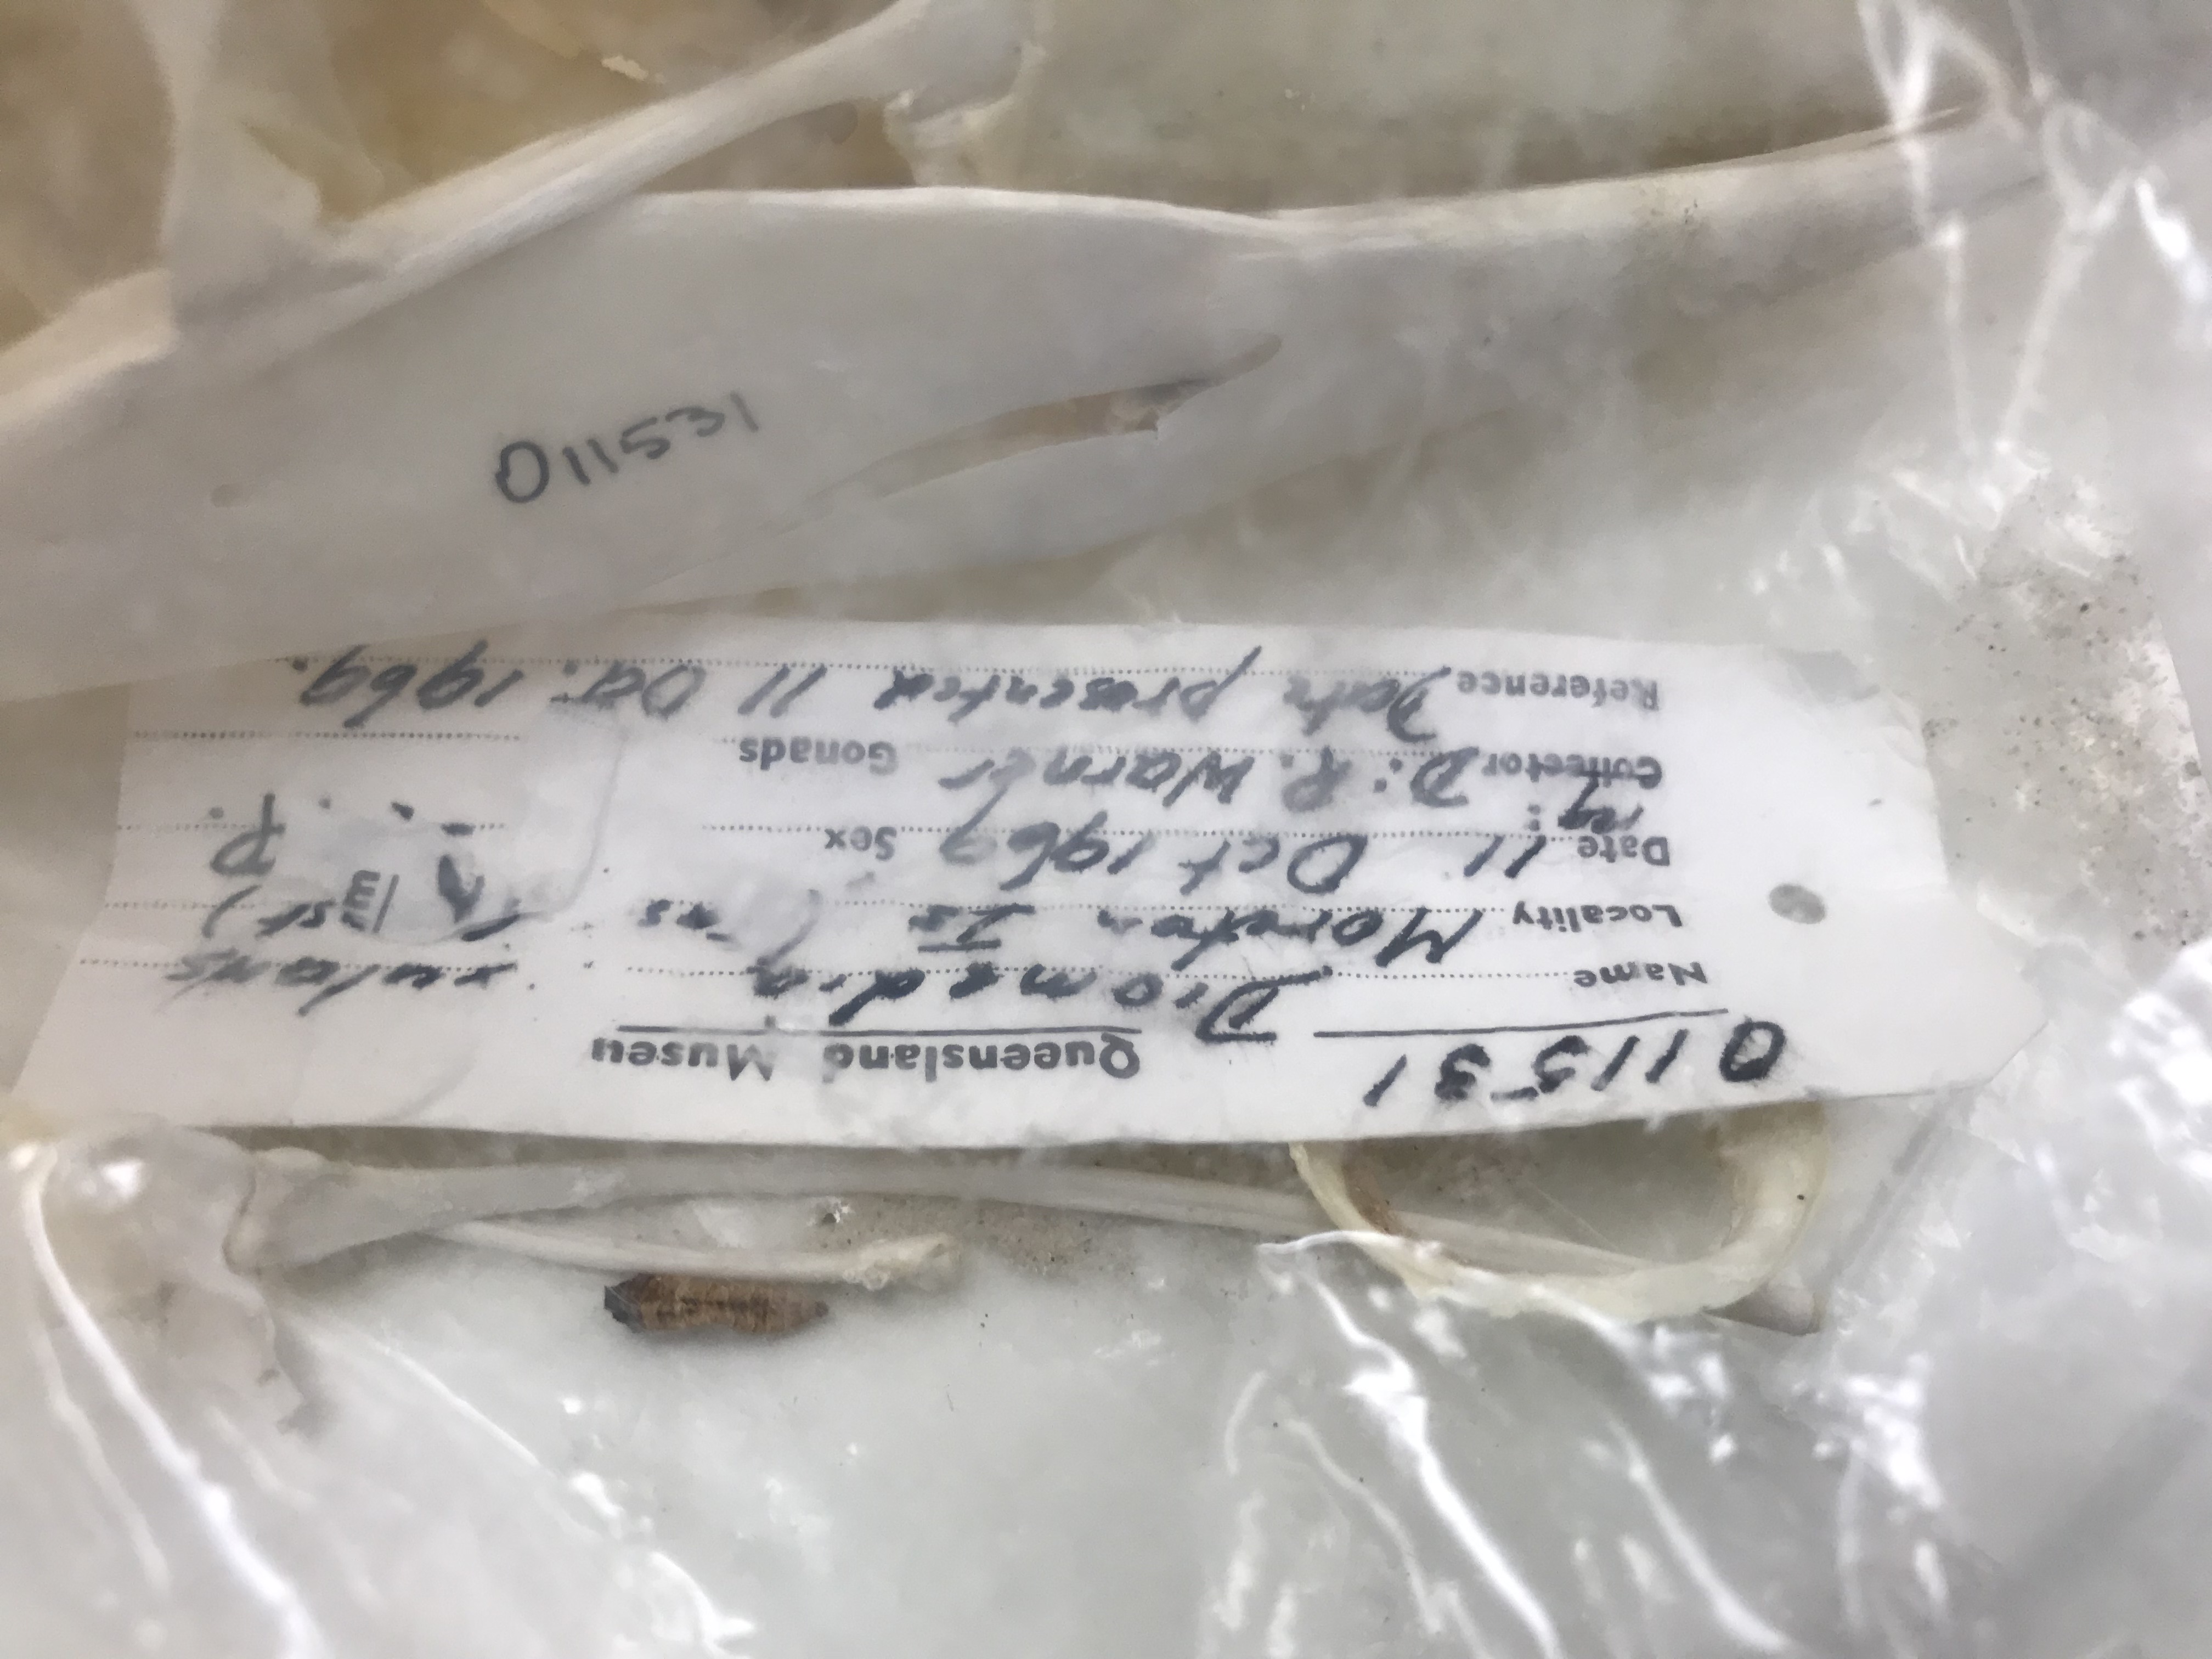 O11531 Queensland Museu
Name Diomedia exulans
Locality Moreton Is
Date 11 Oct 1969 Sex
reg:
Collector D: P. Warner Gonads
Reference Date presented 11 Oct. 1969.
O11531